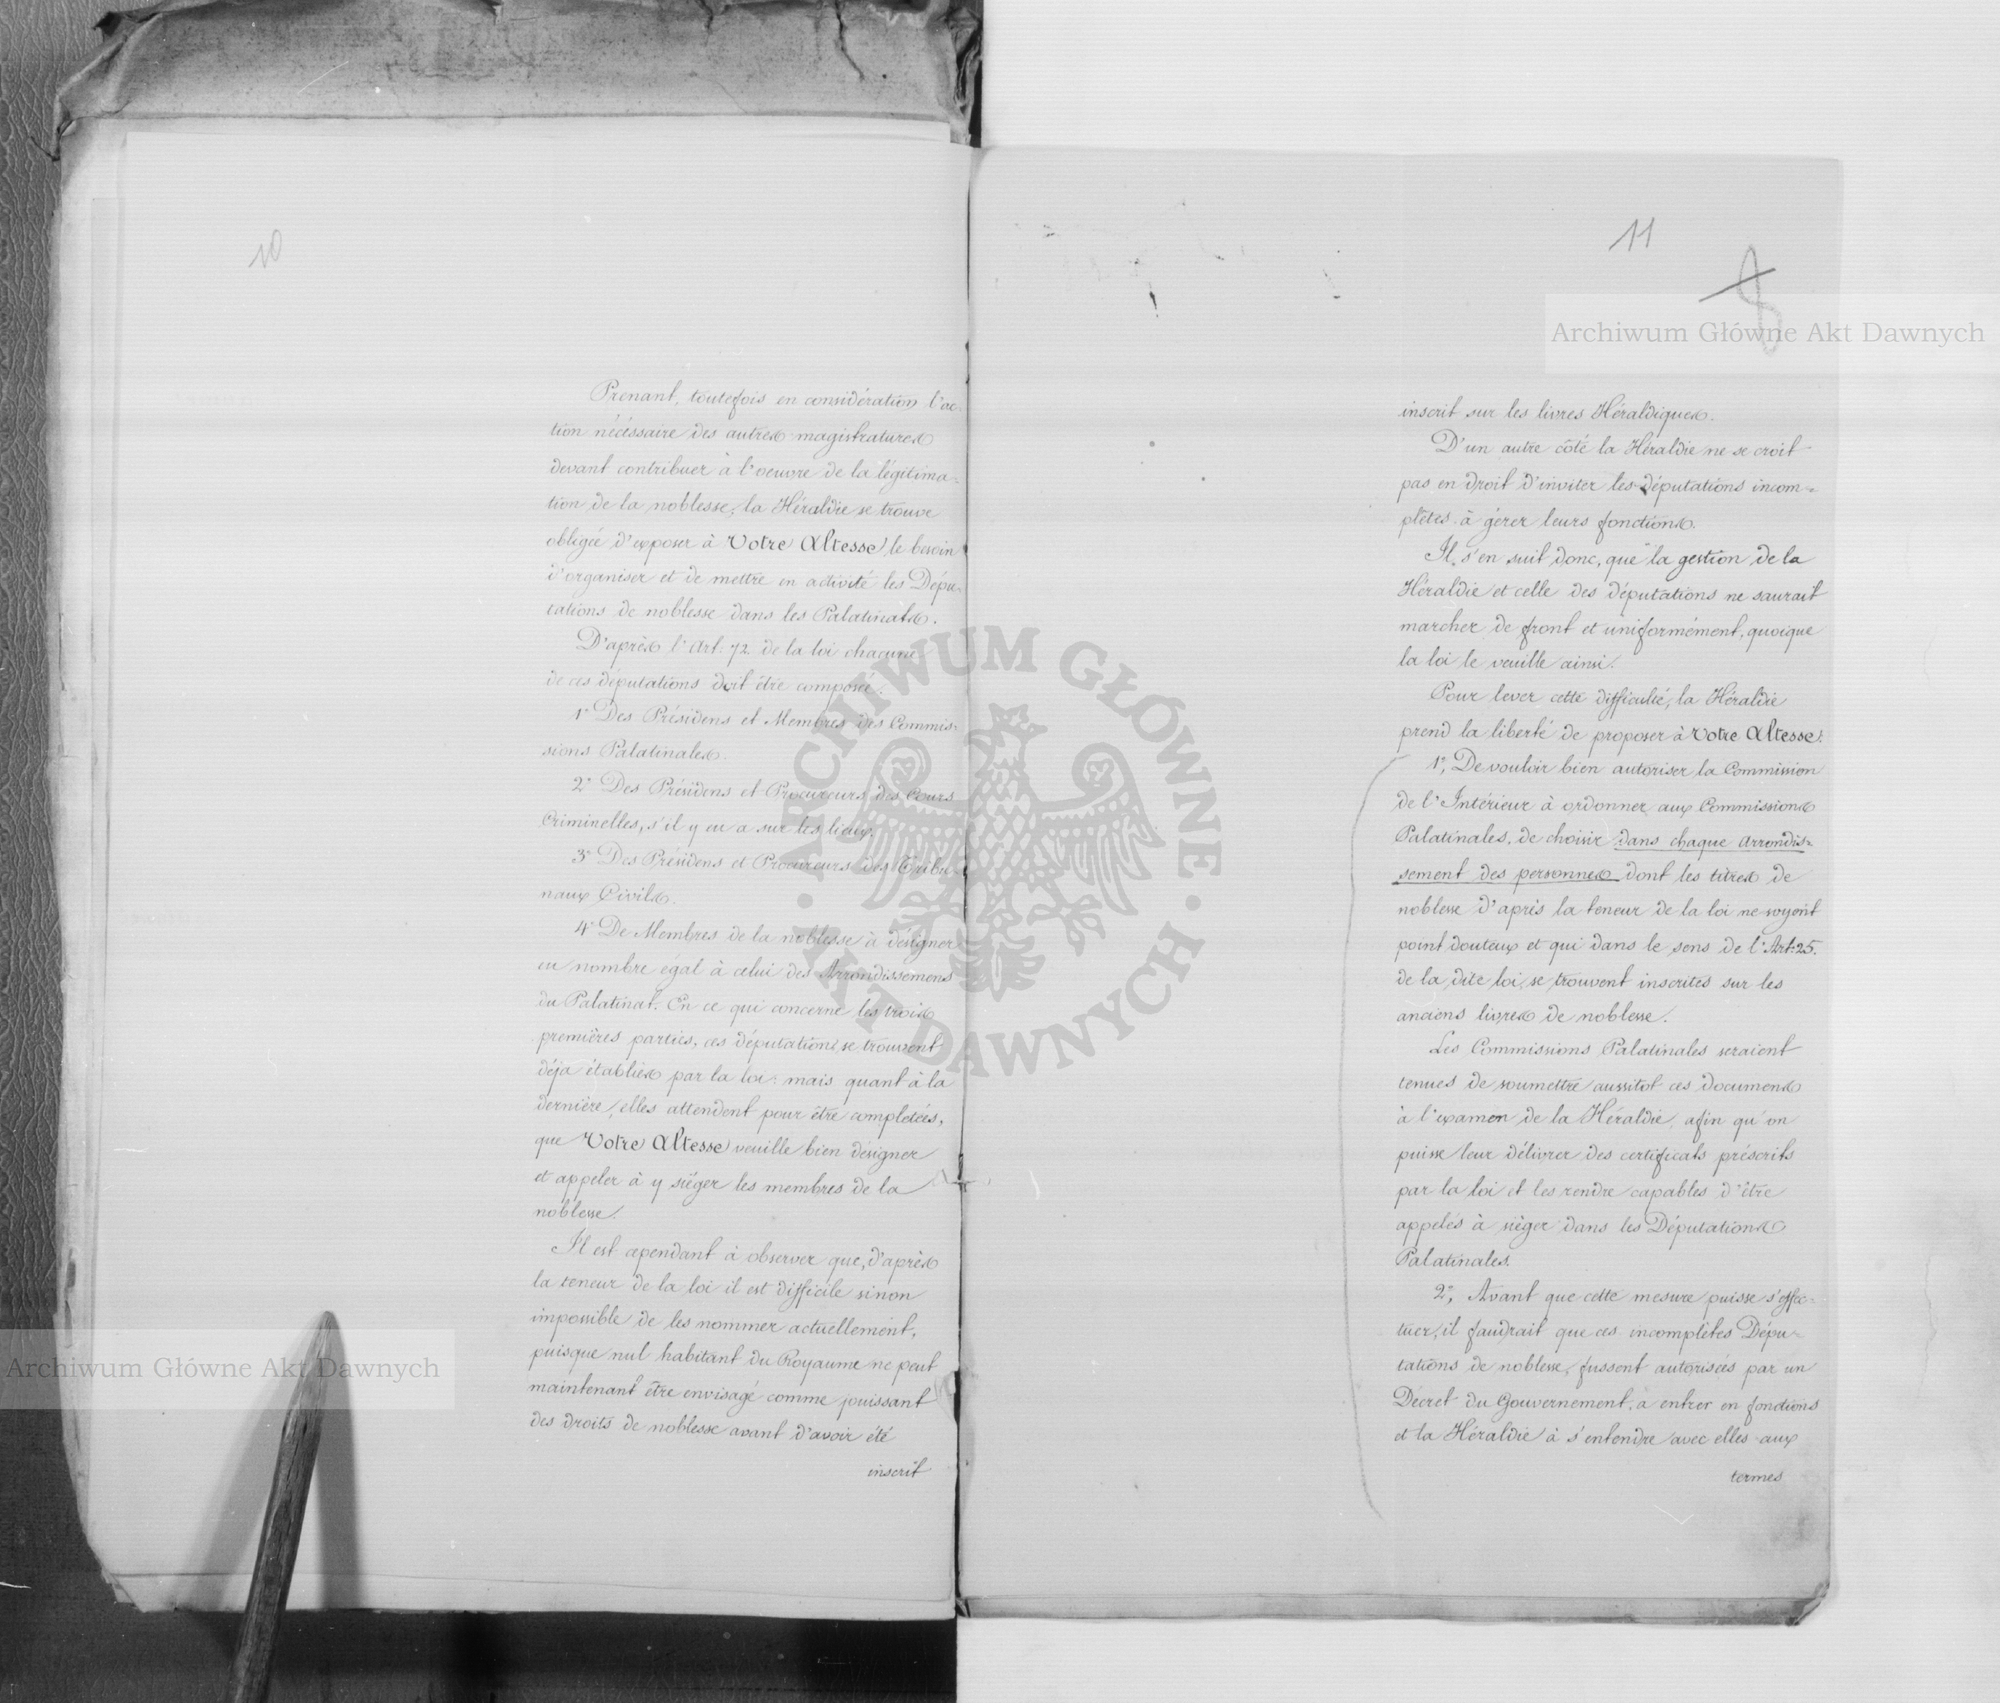 10
Prenant, toutefois en considération l'ac-
tion nécéssaire des autres magistratures
devant contribuer à l'oeuvre de la légitima-
tion de la noblesse, la Héraldie se trouve
obligée d'exposer à Votre Altesse le besoin
d'organiser et de mettre en activité les Dépu-
tations de noblesse dans les Palatinats.
D'après l'Art: 72. de la loi chacune
de ces députations doit être composée:
1° Des Présidens et Membres des Commis-
sions Palatinales.
2° Des Présidens et Procureurs des Cours
Criminelles, s'il y en a sur les lieux.
3° Des Présidens et Procureurs des Tribu-
naux Civils.
4° De Membres de la noblesse à désigner
en nombre égal à celui des Arrondissemens
du Palatinat. En ce qui concerne les trois
premières parties, ces députations se trouvent
déja établies par la loi: mais quant à la
dernière, elles attendent pour être completées,
que Votre Altesse veuille bien désigner
et appeler à y siéger les membres de la
noblesse.
Il est cependant à observer que, d'après
la teneur de la loi il est difficile sinon
impossible de les nommer actuellement,
puisque nul habitant du Royaume ne peut
maintenant être envisagé comme jouissant
des droits de noblesse avant d'avoir été
inscrit
11
8
inscrit sur les livres Héraldiques.
D'un autre côté la Héraldie ne se croit
pas en droit d'inviter les députations incom-
plètes à gérer leurs fonctions.
Il s'en suit donc, que la gestion de la
Héraldie et celle des députations ne saurait
marcher de front et uniformément, quoique
la loi le veuille ainsi.
Pour lever cette difficulté, la Héraldie
prend la liberté de proposer à Votre Altesse:
1°, De vouloir bien autoriser la Commission
de l'Intérieur à ordonner aux Commissions
Palatinales, de choisir dans chaque arrondis-
sement des personnes dont les titres de
noblesse d'après la teneur de la loi ne soyent
point douteux et qui dans le sens de l'Art: 25.
de la dite loi, se trouvent inscrites sur les
anciens livres de noblesse.
Les Commissions Palatinales seraient
tenues de soumettre aussitot ces documens
à l'examen de la Héraldie, afin qu'on
puisse leur délivrer des certificats préscrits
par la loi et les rendre capables d'être
appelés à siéger dans les Députations
Palatinales.
2°, Avant que cette mesure puisse s'effec-
tuer, il faudrait que ces incomplètes Dépu-
tations de noblesse, fussent autorisées par un
Décret du Gouvernement, a entrer en fonctions
et la Héraldie à s'entendre avec elles aux
termes
Archiwum Główne Akt Dawnych
Archiwum Główne Akt Dawnych
ARCHIWUM GŁÓWNE AKT DAWNYCH